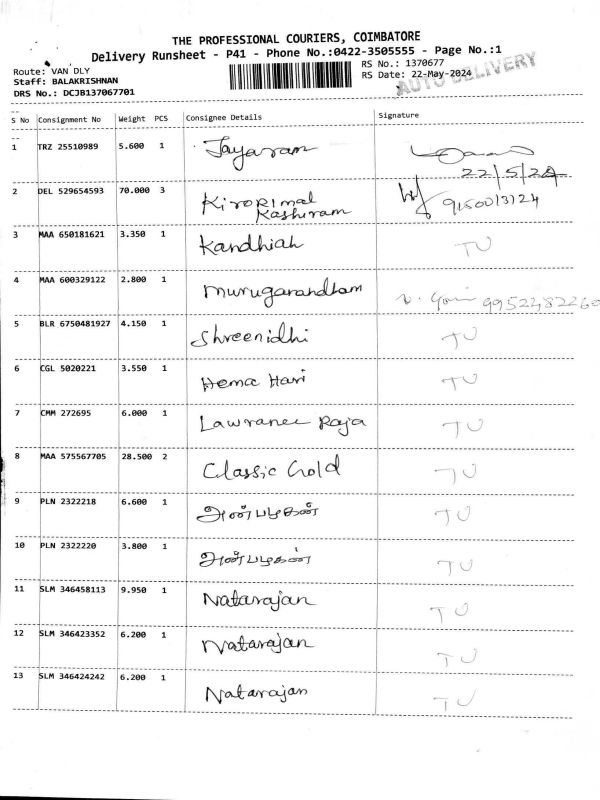 THE PROFESSIONAL COURIERS, COIMBATORE
Delivery Runsheet - P41 - Phone No.:0422-3505555 - Page No.:1
Route: VAN DLY
Staff: BALAKRISHNAN
DRS No.: DCJB137067701
RS No.: 1370677
RS Date: 22-May-2024
AUTO DELIVERY
S No Consignment No Weight PCS Consignee Details Signature
1 TRZ 25510989 5.600 1 Jayaram
22/5/24
2 DEL 529654593 70.000 3 Kirorimal
Kashiram
3 MAA 650181621 3.350 1 Kandhiah TU
4 MAA 600329122 2.800 1 Muruganandham 9952482260
5 BLR 6750481927 4.150 1 Shreenidhi TU
6 CGL 5020221 3.550 1 Hema Hari TU
7 CMM 272695 6.000 1 Lawrance Raja TU
8 MAA 575567705 28.500 2 Classic Gold TU
9 PLN 2322218 6.600 1 அன்பழகன் TU
10 PLN 2322220 3.800 1 அன்பழகன் TU
11 SLM 346458113 9.950 1 Natarajan TU
12 SLM 346423352 6.200 1 Natarajan TU
13 SLM 346424242 6.200 1 Natarajan TU